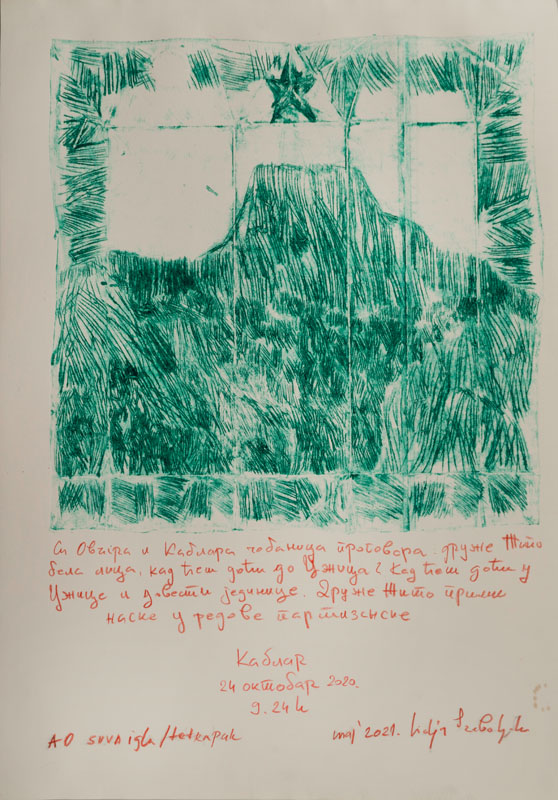 Са Овчара и Каблара чобаница проговора: друже Тито
бела лица, кад ћеш доћи до Ужица? Кад ћеш доћи у
Ужице и довести јединице. Друже Тито прими
наске у редове партизанске
Каблар
24 октобар 2020.
9.24h
AO suva igla/tetrapak
maj 2021.